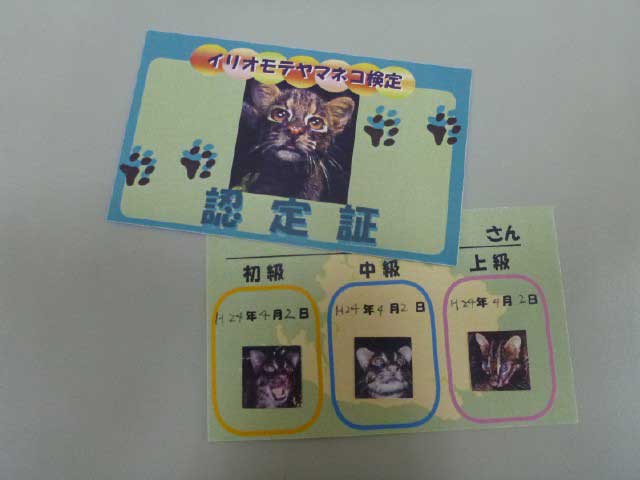 イリオモテヤマネコ検定
認定証
さん
初級 中級 上級
H24年4月2日 H24年4月2日 H24年4月2日